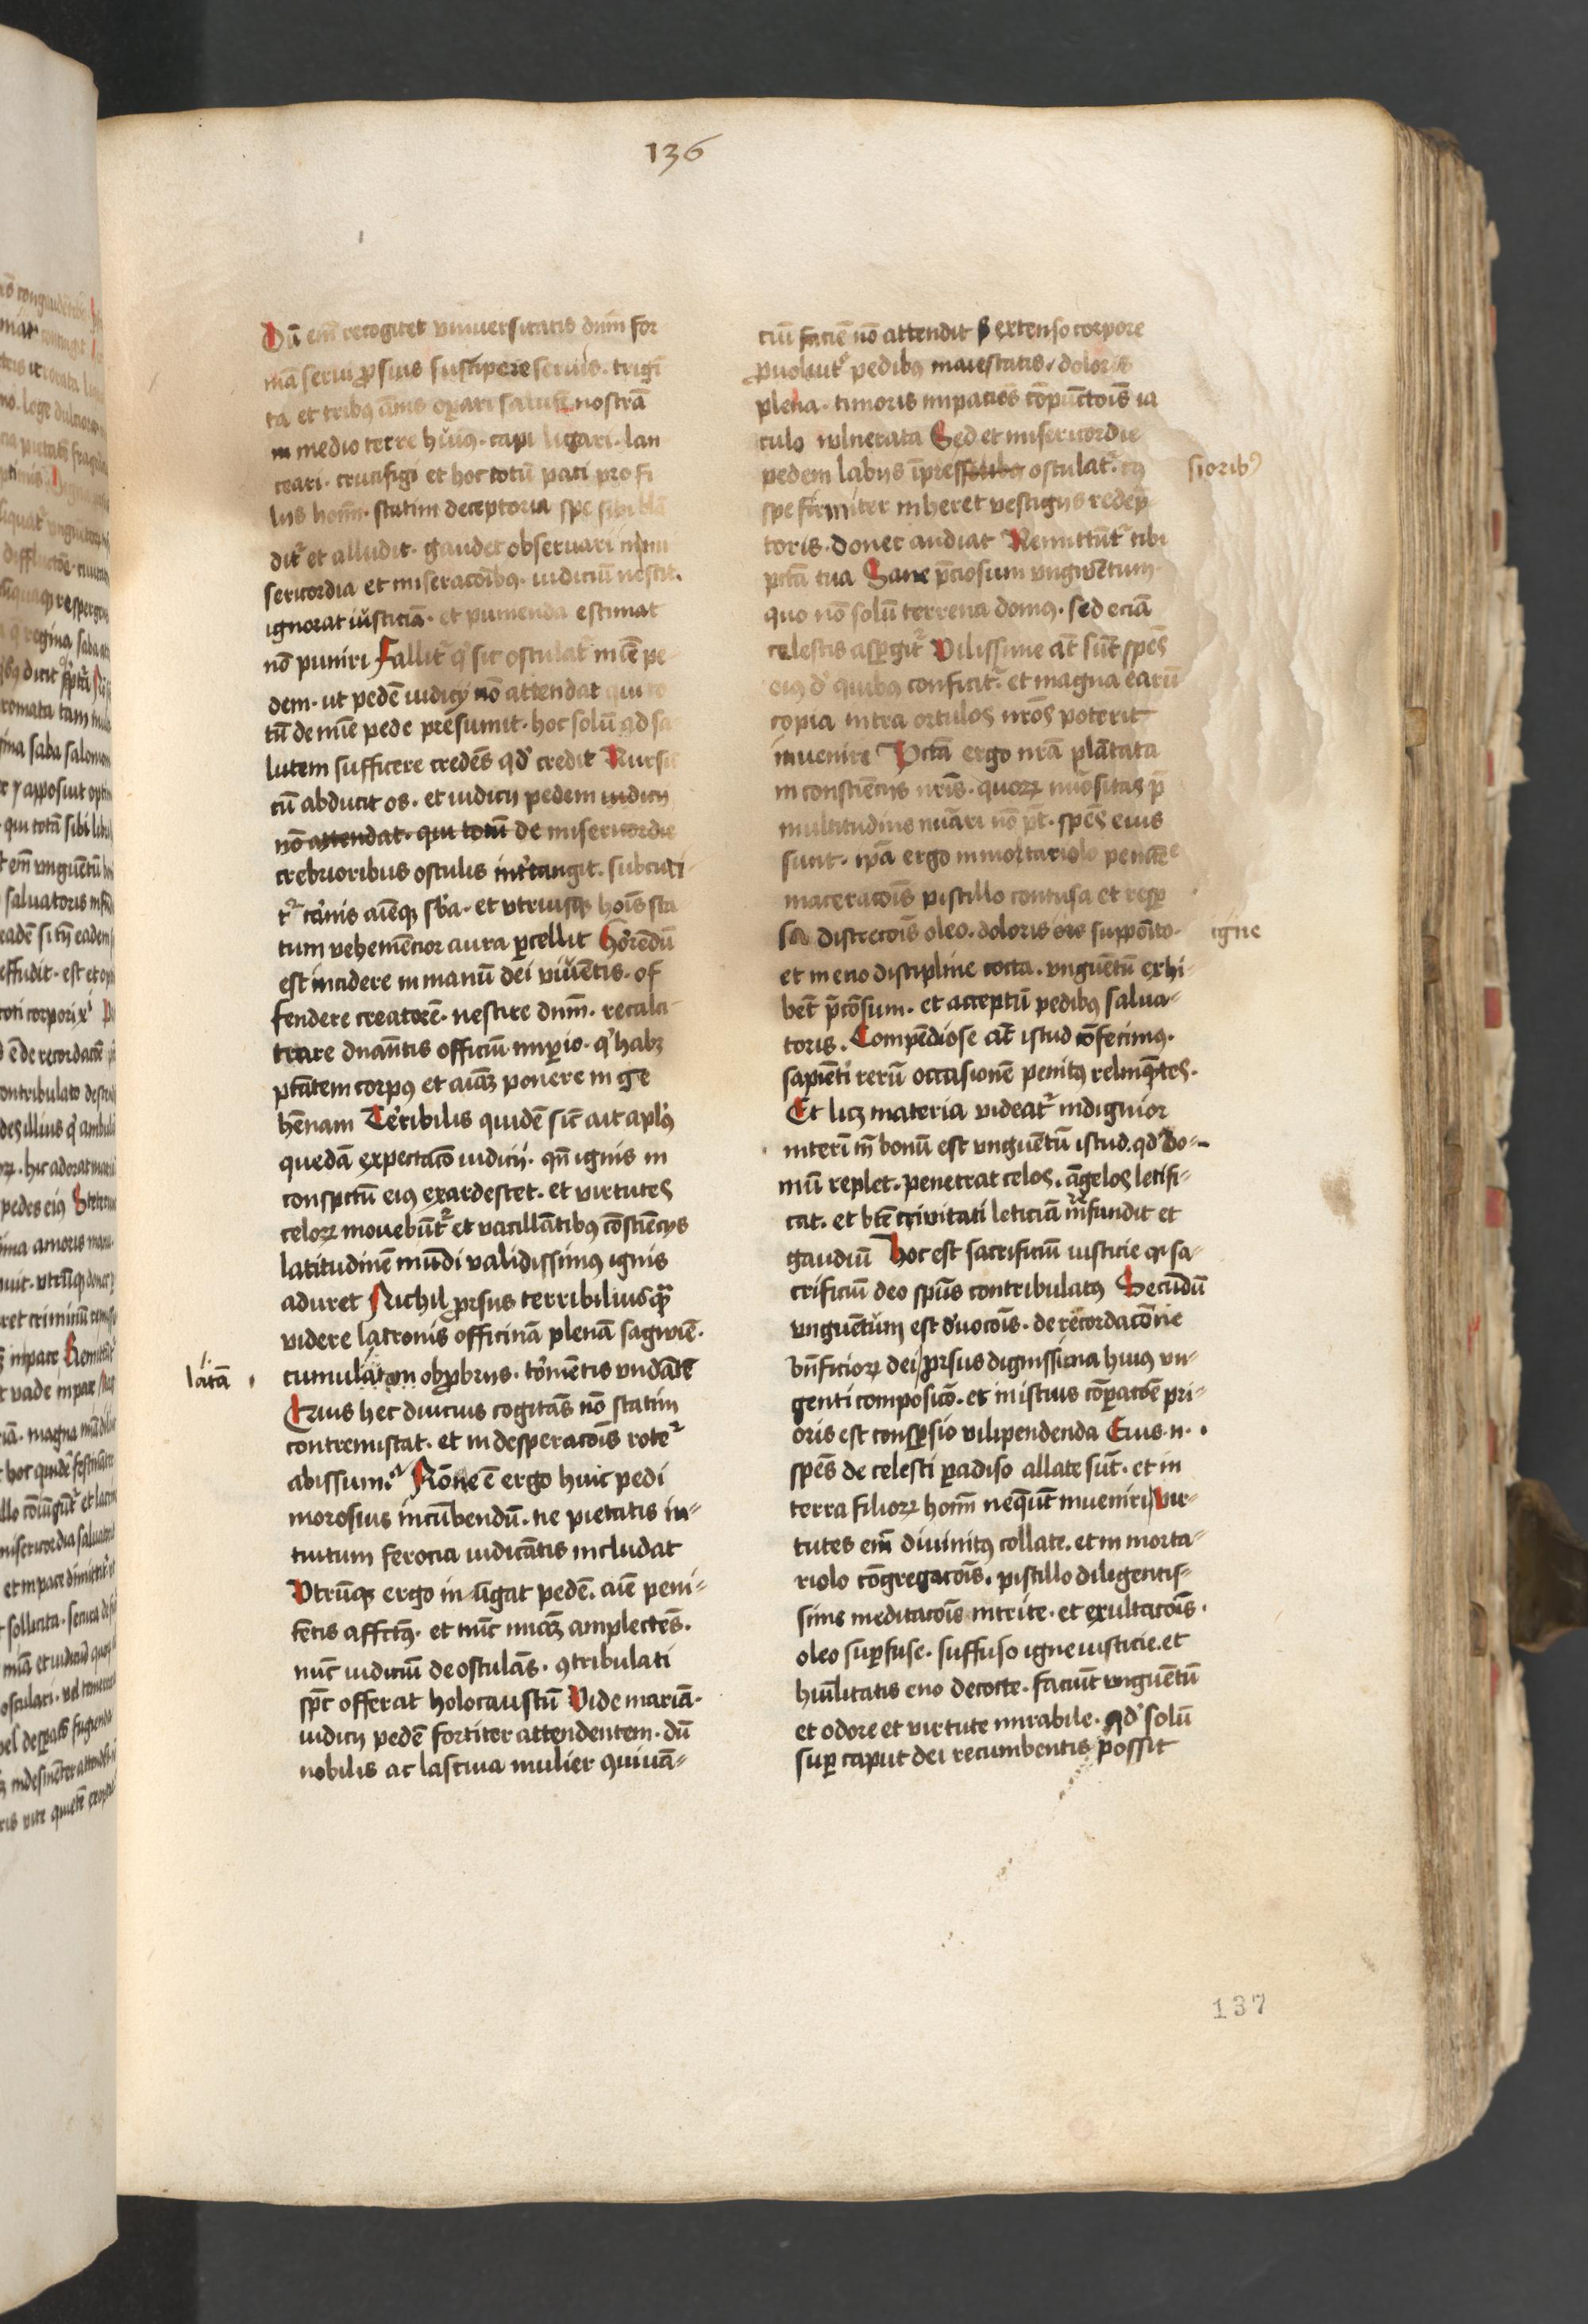 136
Dū em̄ recogitet vniuersitatis dn̄m for
mā serui ꝓ suis suscipere seruis. trigī
ta et tribꝰ ānis oꝑari salutē nostrā
in medio terre hūilꝰ. capi ligari. lan
ceari. crucifigi et hoc totū pati pro fi
liis hom̄. statim deceptoria spe sibi
ditᷣ et alludit. gaudet obseruari in mi
sericordia et miseracōibꝰ. iudiciū nescit.
ignorat iusticiā. et punienda estimat
nō puniri Fallitᷣ qͥ sic osculatᷣ mīe pe
dem. ut pedē iudicij nō attendat qui to
tū de mīe pede presumit. hoc solū ad sa
lutem sufficere credēs qd̓ credit Rursū
cū abducit os. et iudicij pedem iudicij
nō attendat. qui totū de misericordie
crebrioribus osculis int̓tangit. subcuti
tᷣ caͬnis aīeqꝫ sb̓a. et vtriusqꝫ hoīs sta
tum vehemēcior aura ꝑcellit Horrēdū
est incidere in manū dei viuētis. of
fendere creatorē. nescire dnm̄. recalci
trare dnāntis officiū impio. qͥ habꝫ
ptātem corpꝰ et aīaꝫ ponere in ge
hēnam Teͬribilis quidē sic̄ ait aplꝰ
quedā expectacō iudicij. qn̄ ignis in
conspctū eiꝰ exardescet. et virtutes
celoꝝ mouebūtᷣ et vacillātibꝰ cōsciēcijs
latitudinē mūdi validissimꝰ ignis
aduret Nichil ꝓrsus terribiliusqᷓꝫ
videre latronis officinā plenā sagwīe.
cumulatam obꝓbrijs. toͬmētis vndātē
latā
Cuius hec diucius cogitās nō statim
contremiscat. et in desperacōis roteᷣ
abissum? Rōne ē ergo huic pedi
morosius incūbendū. ne pietatis in⸗
tuitum ferocia iudicātis includat
Vtrūqꝫ ergo iungat pedē. aīe peni⸗
tētis affctꝰ. et nūc miāꝫ amplectēs.
nūc iudiciū deosculās. ꝯtribulati
spc̄ offerat holocaustū Vide mariā.
iudicij pedē fortiter attendentem. dū
nobilis ac lasciua mulier ꝯuiuā⸗
ciū faciē nō attendit s̓ extenso corpore
ꝓuoluitᷣ pedibꝰ maiestatis. doloris
plena. timoris impaciēs cōpūctoīs ia
culo vulnerata Sed et misericordie
pedem labijs īpressioribꝰ osculatᷣ. eiꝰ
sioribꝰ
spe firmiter inheret vestigijs redēp
toris. donec audiat Remittūtᷣ tibi
pctā tua Sane p̄ciosum vngwētum.
quo nō solū terrena domꝰ. sed eciā
celestis aspgitᷣ Vilissime at̄ sūt spēs
eiꝰ d̓ quibꝰ conficitᷣ. et magna earū
copia intra ortulos nr̄os poterit
inuenire Pctā ergo nr̄a plātata
in consciēcijs nr̄is. quoꝝ nūositas p̄
multitudinis nūari nō pt̄. spēs eius
sunt. ip̄a ergo in mortariolo penitēcie
maceracōis pistillo contusa et resp
sa discrecōis oleo. doloris supposito.
igne
et in eno discipline cocta. vnguētū exhi
bēt p̄cōsum. et acceptū pedibꝰ salua⸗
toris. Compēdiose at̄ istud cōfecimꝰ.
sapiēti rerū occasionē penitꝰ relinqᷓtes.
Et licꝫ materia videatᷣ indignior
interī tn̄ bonū est vnguētū istud. qd̓ do⸗
mū replet. penetrat celos. āgelos letifi⸗
cat. et btē trinitati leticiā infundit et
gaudiū Hoc est sacrificiū iusticie qꝛ sa⸗
crificiū deo spūs contribulatꝰ Secūdū
vnguētum est d̓uocōis. de recordacōne
bn̄ficioꝝ dei ꝓrsus dignissima huiꝰ vn⸗
genti composicō. et in istius cōꝑacōe pri⸗
oris est conspersio vilipendenda Eius. n.
spēs de celesti paradiso allate sūt. et in
terra filioꝝ hom̄ neq̄ūt inueniri Vir⸗
tutes em̄ diuinitꝰ collate. et in morta⸗
riolo cōgregacōis. pistillo diligentis⸗
sime meditacōis intrite. et exultacōis.
oleo suꝑfuse. suffuso igne iusticie. et
hūilitatis eno decocte. faciūt vnguētū
et odore et virtute mirabile. qd̓ solū
suꝑ caput dei recumbentis possit
137